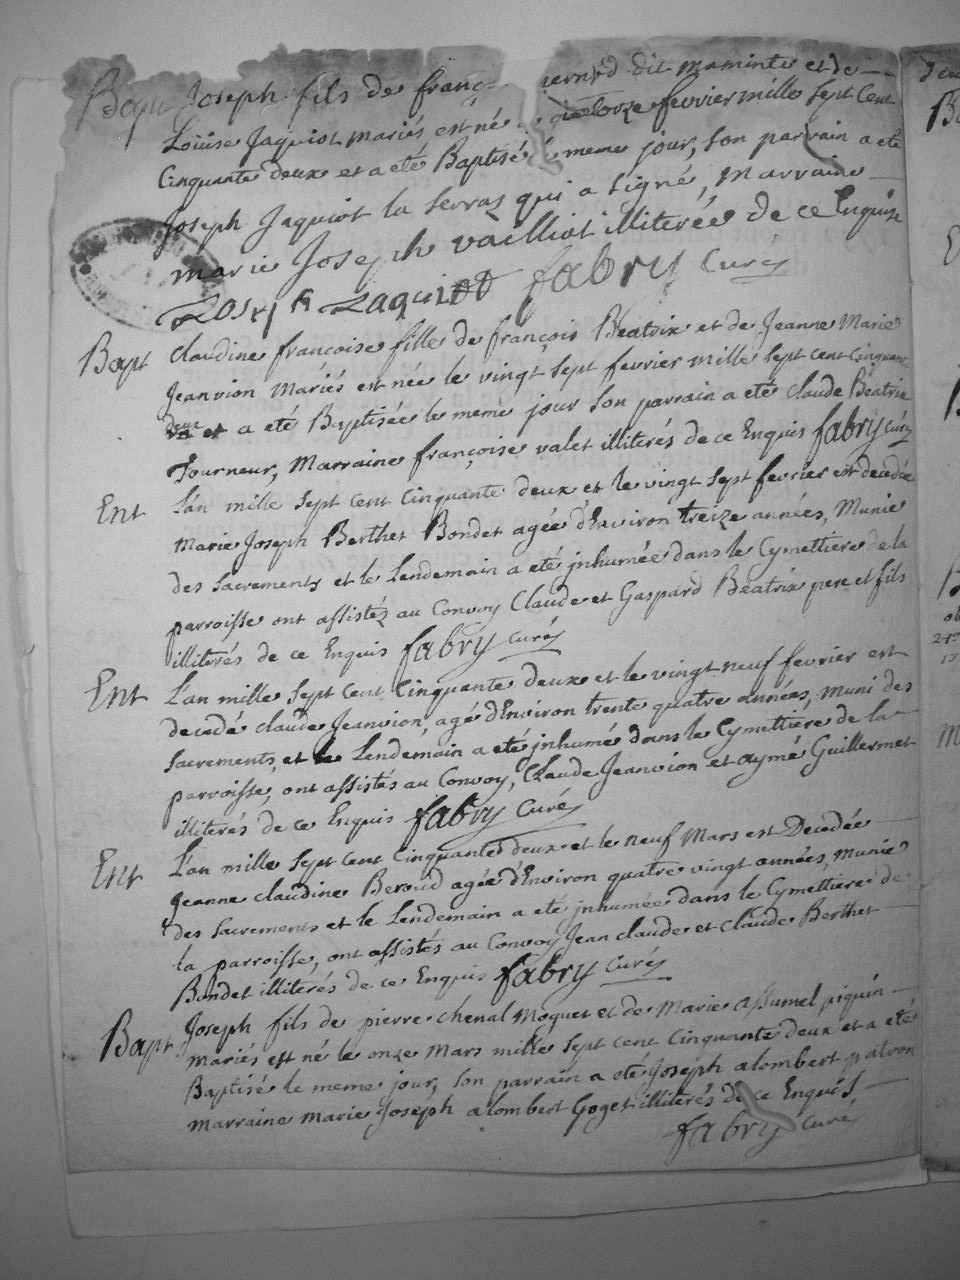 Bapt Joseph fils de franç uernd dit maminte et de
Loüise Jaquiot mariés est né quatorze fevrier mille sept cent
Cinquante deux et a eté Baptisé meme jour, son parrain a eté
Joseph Jaquiot la serraz qui a signé, marraine
marie Joseph vailliot illiterée de ce Enquis
Joseph Jaquiot fabry Curé
Bapt Claudine francoise fille de françois Beatrix et de Jeanne Marie
Jeanvion Mariés est née le vingt sept fevrier mille sept cent cinquante
deux et a eté Baptisée le meme jour son parrain a eté Claude Béatrix
Tourneur, Marraine françoise valet illiterés de ce Enquis fabry Curé
Ent L'an mille sept cent Cinquante deux et le vingt sept fevrier est decedée
Marie Joseph Berthet Bondet agée d'Environ treize années, Munie
des sacrements et le Lendemain a eté jnhumée dans le Cymettiere de la
parroisse ont assistéz au Convoy Claude et Gaspard Béatrix pere et fils
illiterés de ce Enquis fabry Curé
Ent L'an mille sept cent Cinquante deux et le vingt neuf fevrier est
decedé Claude Jeanvion, agé d'Environ trente quatre années, muni des
sacrements, et le Lendemain a eté jnhumé dans le Cymettiere de la
parroisse, ont assistés au Convoy, Claude Jeanvion et aymé Guillermet
illiterés de ce Enquis fabry Curé
Ent L'an mille sept cent Cinquante deux et le neuf Mars est Decedée
Jeanne claudine Beroud agée d'Environ quatre vingt années, munie
des sacrements et le Lendemain a eté jnhumée dans le Cymettiere de
la parroisse, ont assistés au Convoy Jean claude et Claude Berthet
Bondet illiterés de ce Enquis fabry Curé
Bapt Joseph fils de pierre chenal Moquet et de Marie assumel piquin
mariés est né le onze Mars mille sept cent Cinquante deux et a eté
Baptisé le meme jour, son parrain a eté Joseph alombert patron
marraine marie Joseph alombert Goget illiterés de ce Enquis,
fabry Curé